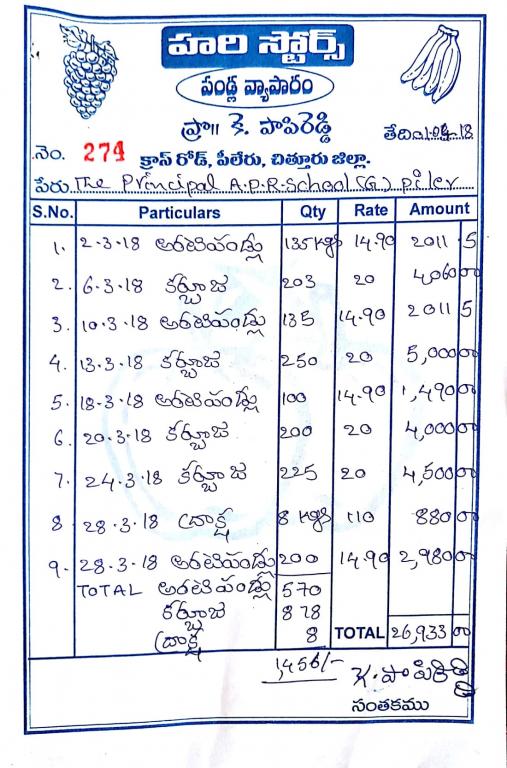 హరి స్టోర్స్
పండ్ల వ్యాపారం
ప్రొ॥ కె. పాపిరెడ్డి
తేది 1.04.18
నెం. 274 క్రాస్ రోడ్, పీలేరు, చిత్తూరు జిల్లా.
పేరు. The Principal A.P.R. School (G) piler
S.No. Particulars Qty Rate Amount
1. 2.3.18 అరటిపండ్లు 135 Kgs 14.90 2011 5
2. 6.3.18 కర్బూజ 203 20 4060 00
3. 10.3.18 అరటిపండ్లు 135 14.90 2011 5
4. 13.3.18 కర్బూజ 250 20 5,000 00
5. 18.3.18 అరటిపండ్లు 100 14.90 1,490 00
6. 20.3.18 కర్బూజ 200 20 4,000 00
7. 24.3.18 కర్బూజ 225 20 4,500 00
8 28.3.18 ద్రాక్ష 8 Kgs 110 880 00
9. 28.3.18 అరటిపండ్లు 200 14.90 2,980 00
TOTAL అరటిపండ్లు 570
కర్బూజ 878
ద్రాక్ష 8 TOTAL 26,933 00
1,456/- కె. పాపిరెడ్డి
సంతకము